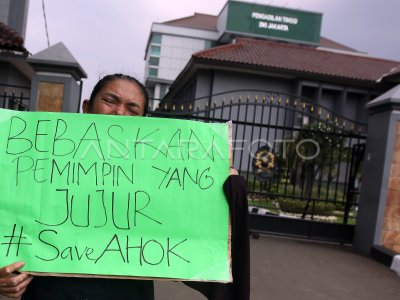 PENGADILAN TINGGI
DKI JAKARTA
BEBASKAN
PEMIMPIN YANG
JUJUR
#SaveAHOK
ANTARAFOTO